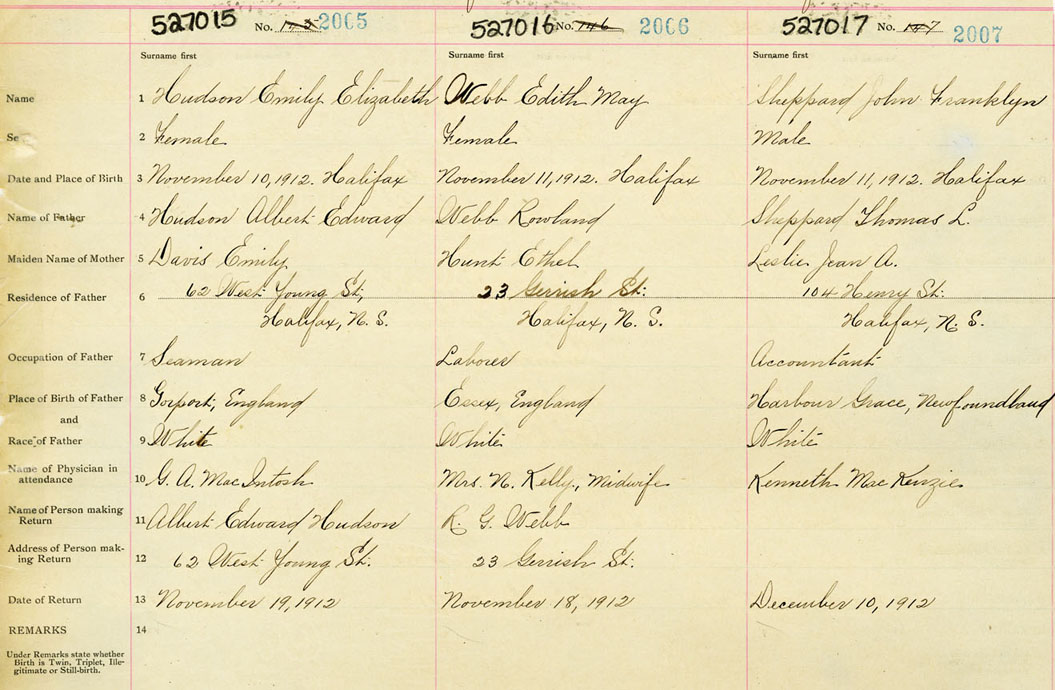 527015 No. 2005 527016 No. 146 2006 527017 No. 147 2007
Surname first Surname first Surname first
Name 1 Hudson Emily Elizabeth Webb Edith May Sheppard John Franklyn
Se 2 Female Female Male
Date and Place of Birth 3 November 10, 1912. Halifax November 11, 1912. Halifax November 11, 1912. Halifax
Name of Father 4 Hudson Albert Edward Webb Rowland Sheppard Thomas L.
Maiden Name of Mother 5 Davis Emily Hunt Ethel Leslie Jean A.
Residence of Father 6 62 West Young St, 23 Gerrish St. 104 Henry St.
Halifax, N. S. Halifax, N. S. Halifax, N. S.
Occupation of Father 7 Seaman Laborer Accountant
Place of Birth of Father 8 Gosport, England Essex, England Harbour Grace, Newfoundland
and
Race of Father 9 White White White
Name of Physician in
attendance 10 G. A. MacIntosh Mrs. N. Kelly, Midwife Kenneth MacKenzie
Name of Person making
Return 11 Albert Edward Hudson R. G. Webb
Address of Person mak-
ing Return 12 62 West Young St. 23 Gerrish St.
Date of Return 13 November 19, 1912 November 18, 1912 December 10, 1912
REMARKS 14
Under Remarks state whether
Birth is Twin, Triplet, Ille-
gitimate or Still-birth.